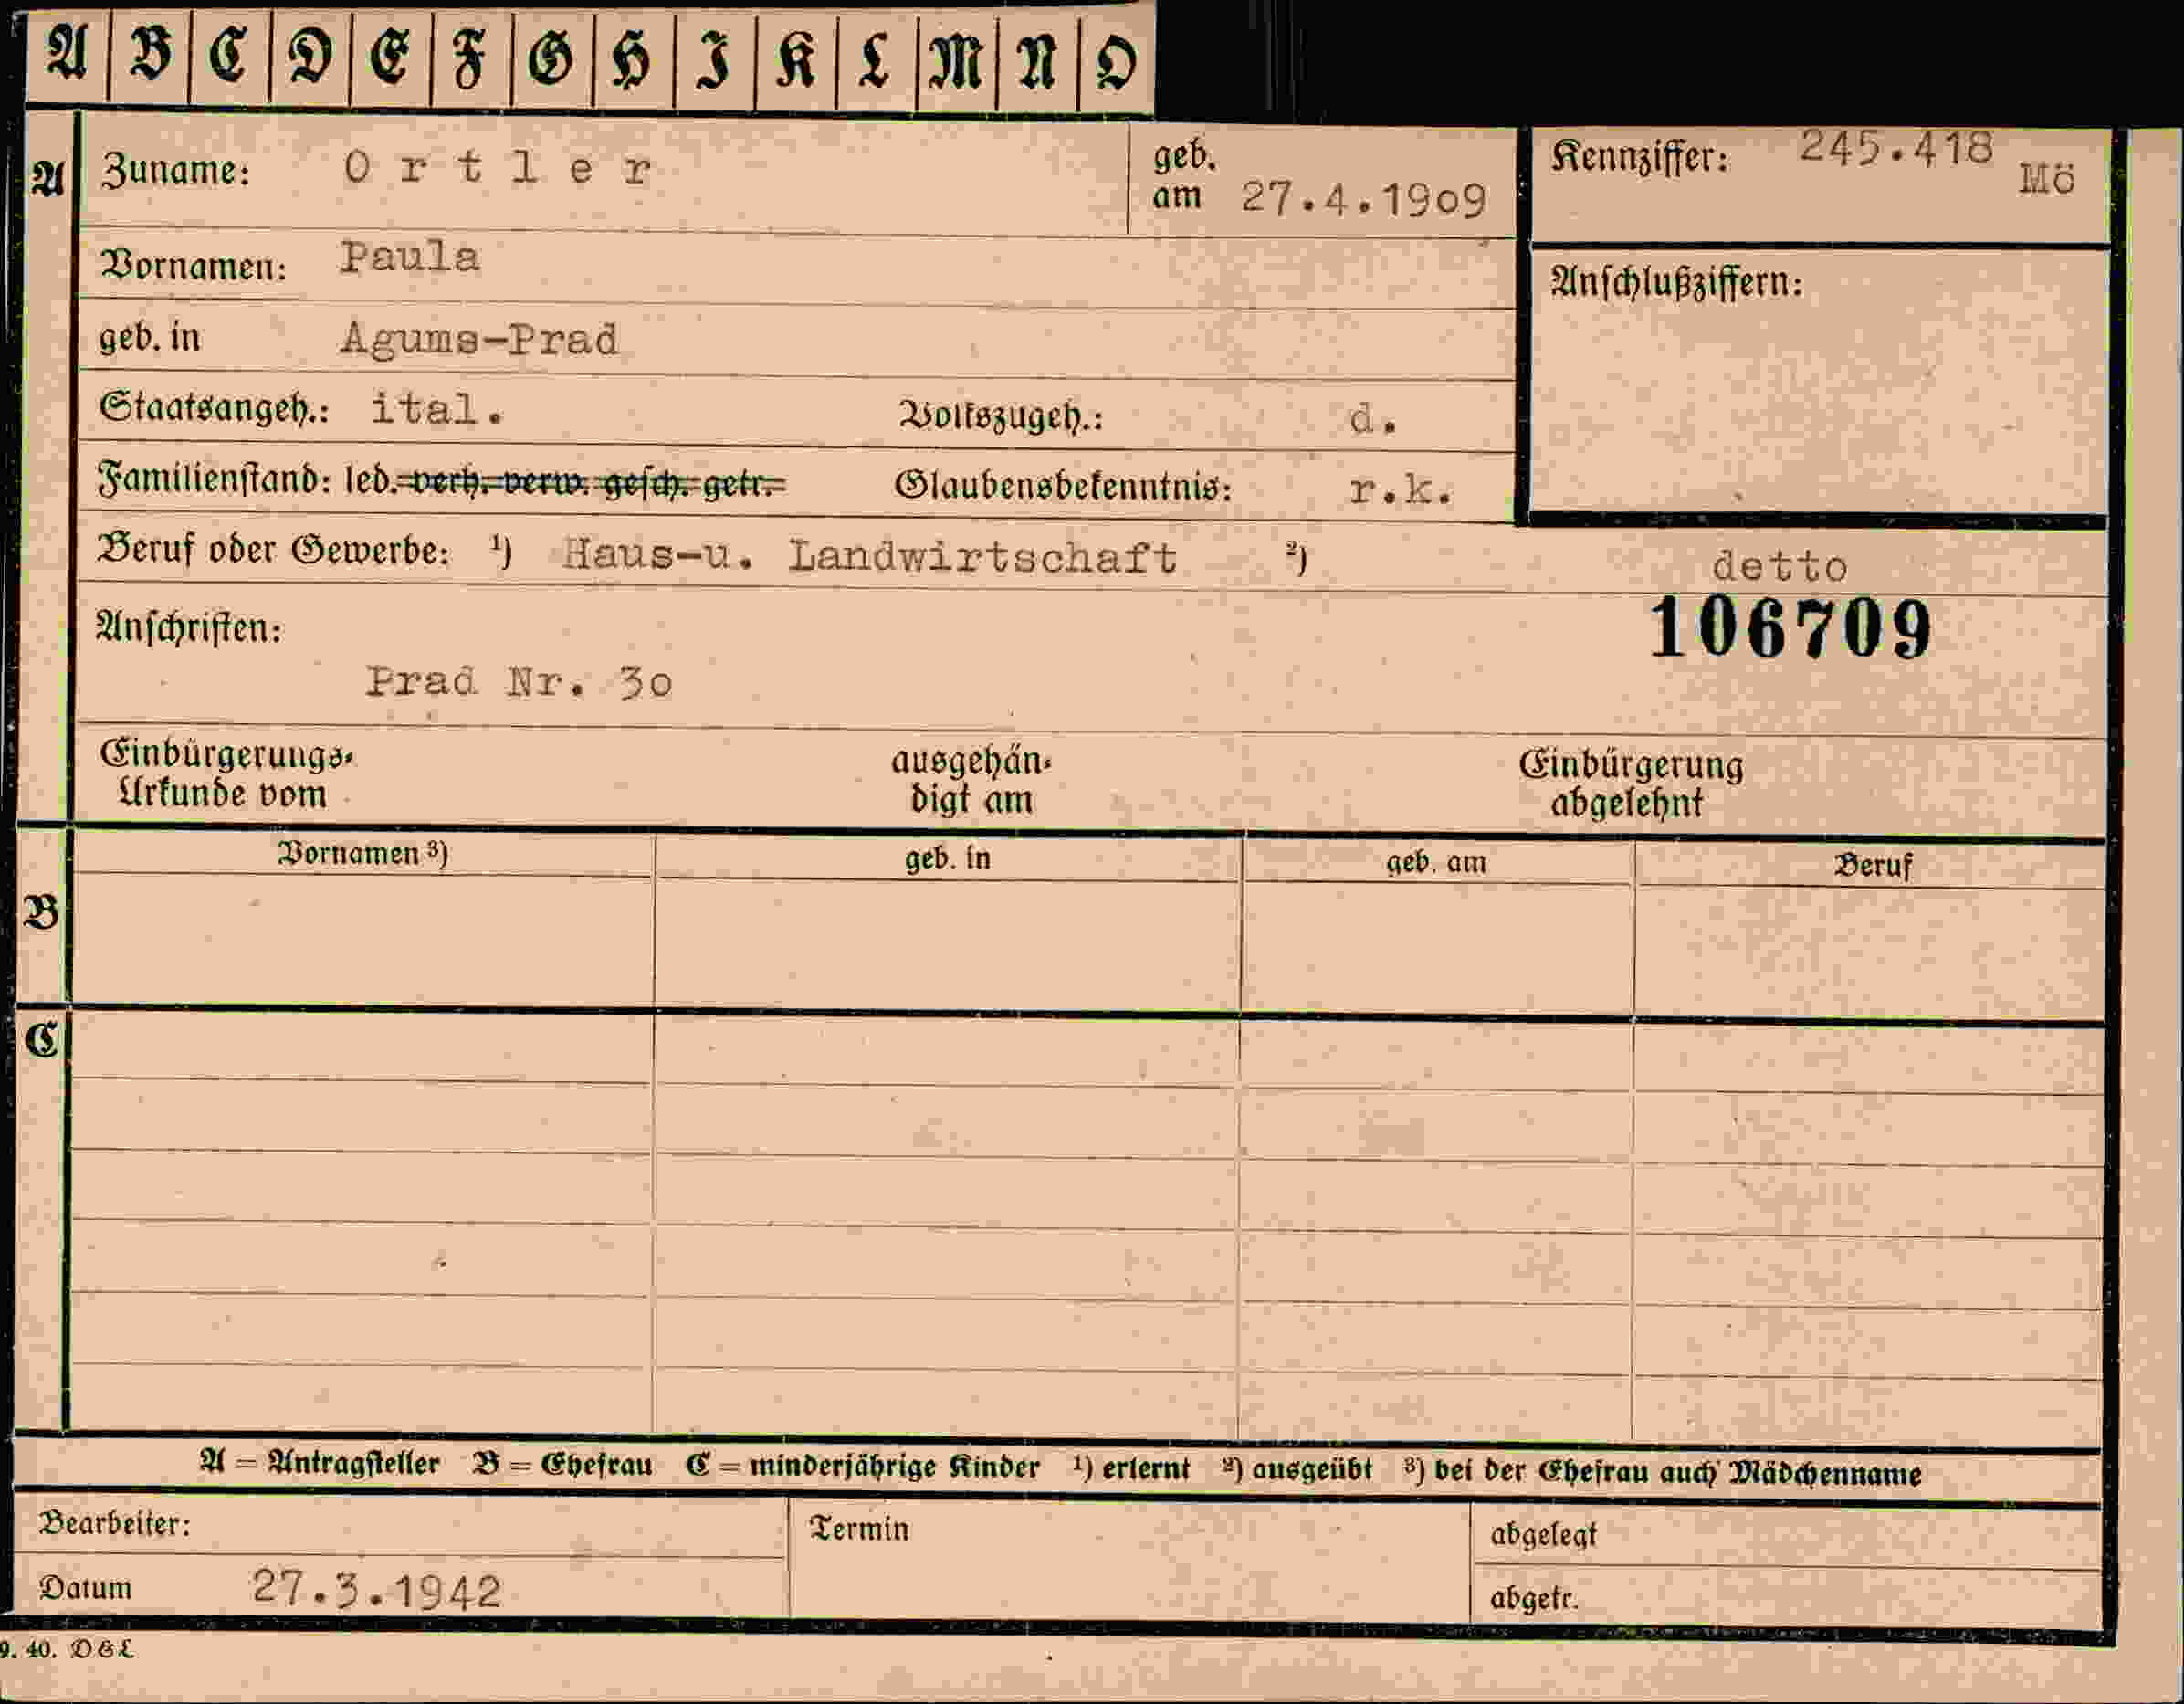 A B C D E F G H I K L M N O
A Zuname: Ortler geb. am 27.4.1909 Kennziffer: 245.418 Mö
Vornamen: Paula Anschlußziffern:
geb. in Agums-Prad
Staatsangeh.: ital. Volkszugeh.: d.
Familienstand: led. verh. verw. gesch. getr. Glaubensbekenntnis: r.k.
Beruf oder Gewerbe: ¹) Haus-u. Landwirtschaft ²) detto
Anschriften: 106709
Prad Nr. 30
Einbürgerungs- ausgehän- Einbürgerung
Urkunde vom digt am abgelehnt
Vornamen ³) geb. in geb. am Beruf
B
C
A = Antragsteller B = Ehefrau C = minderjährige Kinder ¹) erlernt ²) ausgeübt ³) bei der Ehefrau auch Mädchenname
Bearbeiter: Termin abgelegt
Datum 27.3.1942 abgetr.
9. 40. D & L